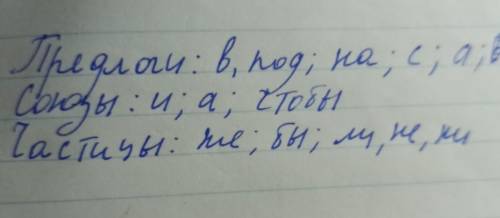 Предлоги: в, под; на; с; а;
Союзы: и; а; чтобы
Частицы: же; бы; ли, не, ни